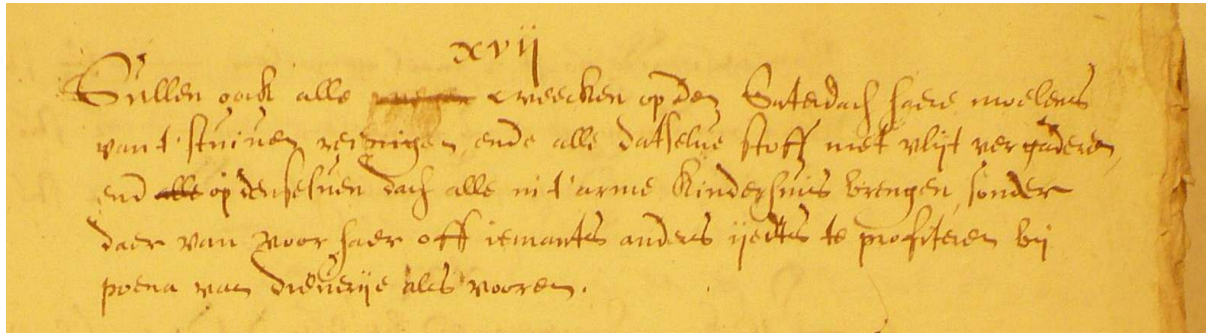 xvij
Sullen oock alle weecken op den Saterdach haere moelens
van t'stuiven reinigen, ende alle datselve stoff met vlijt vergaderen,
end alle op denselven dach alle in t'arme Kindershuis brengen, sonder
daer van voor haer off iemants anders ijedts te profiteren bij
poena van dieverije als vooren.